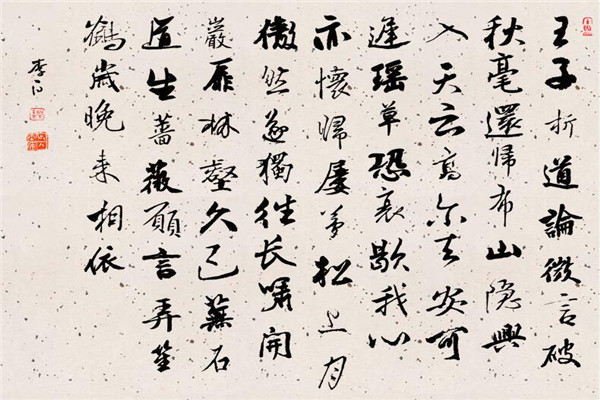 王子析道論微言破
秋毫還歸布山隐興
入天云高尔去安可
遲瑶草恐衰歇我心
亦懷歸屢夢松上月
傲然遂獨往长嘯開
巖扉林壑久已蕪石
道生薔薇願言弄笙
鶴歲晚来相依
李白